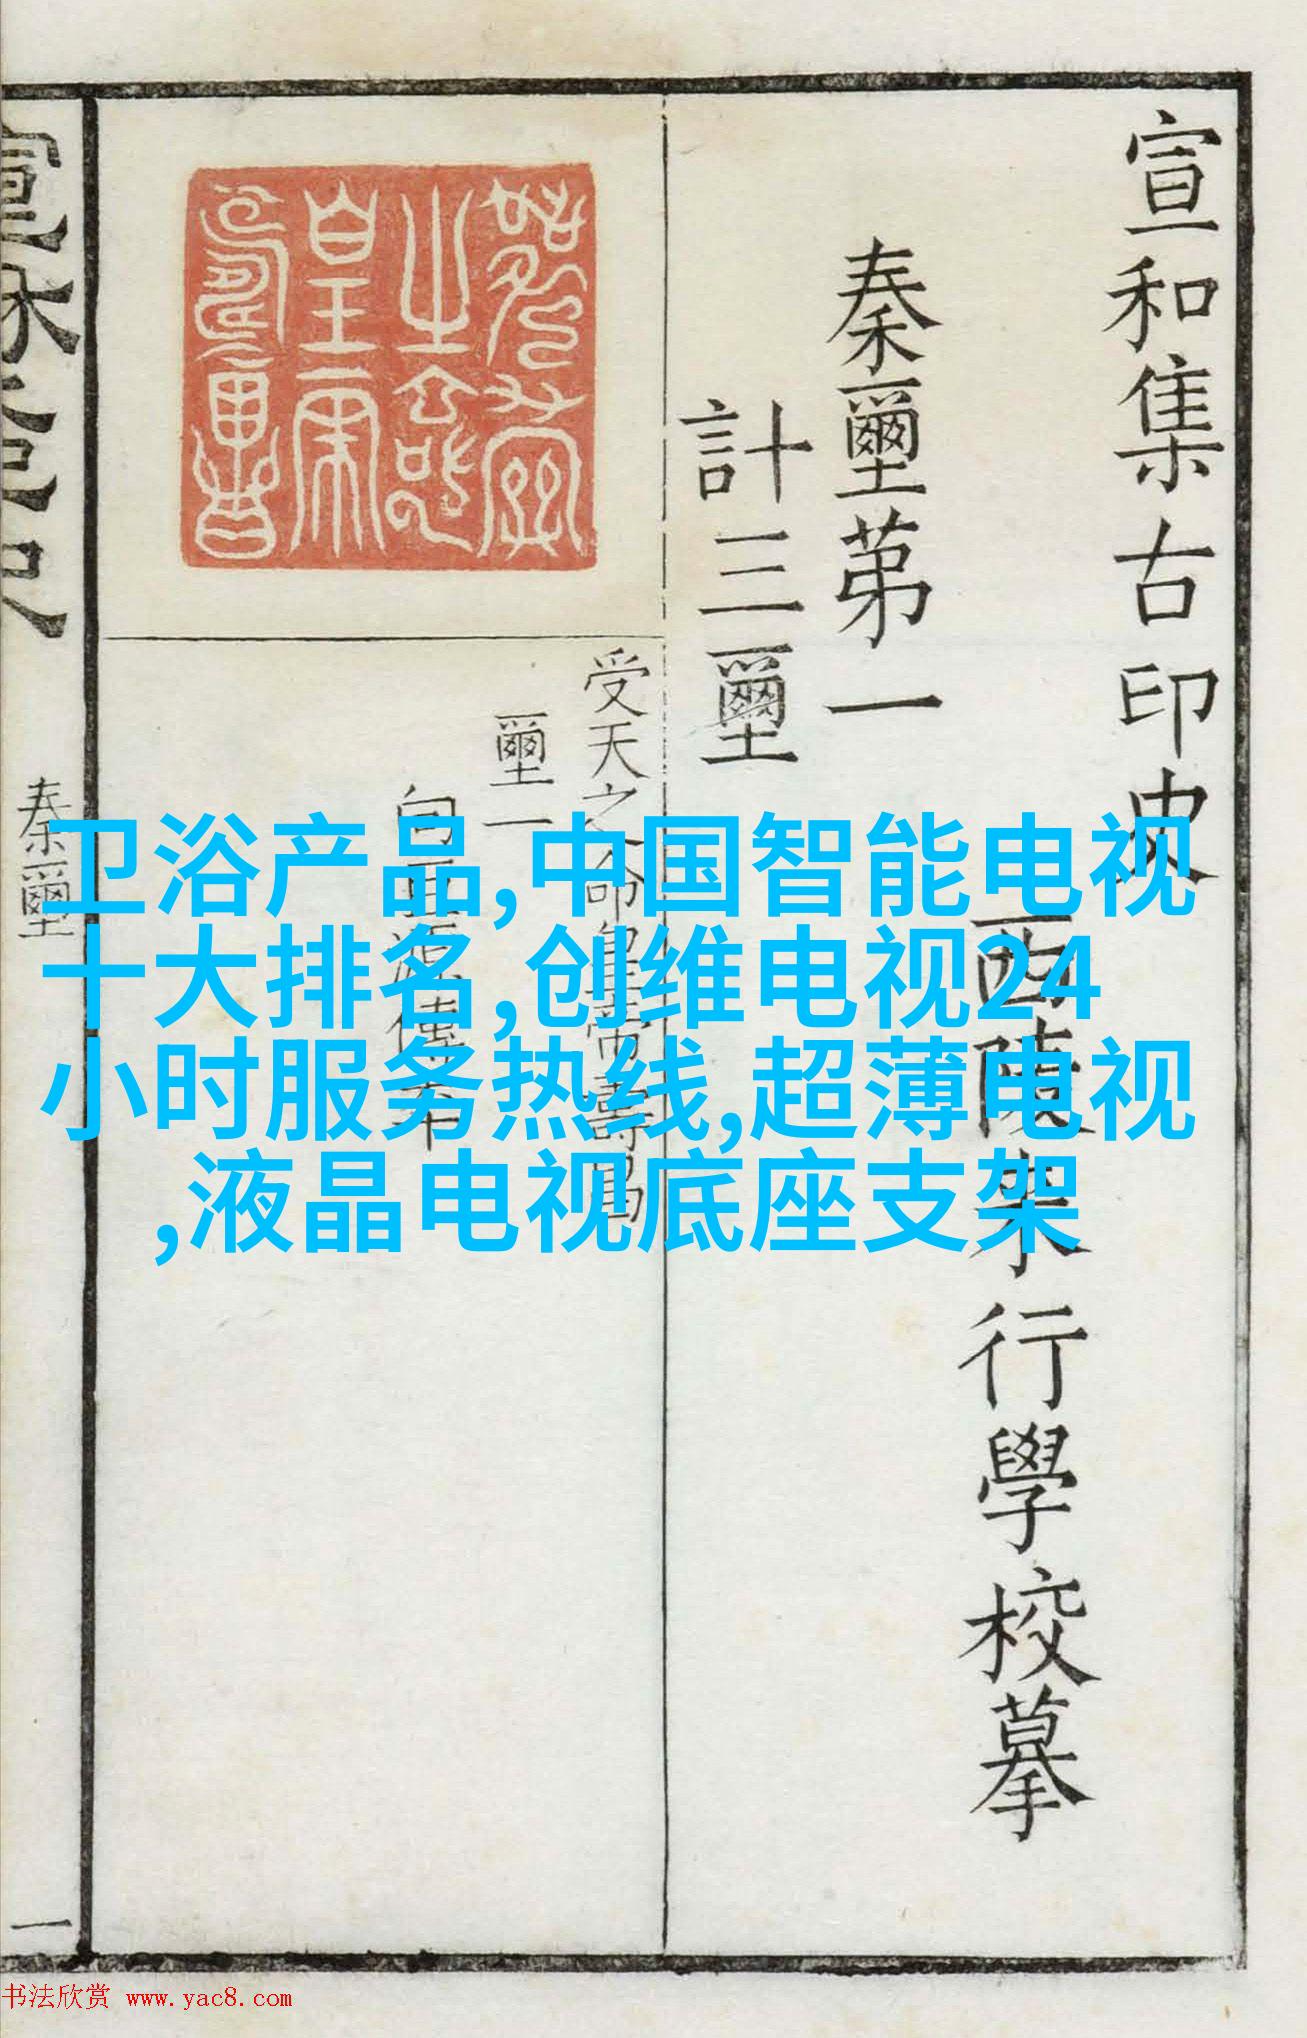 宣和集古印史
西陵来行學校摹
秦璽苐一
計三璽
受天之命皇帝壽昌
璽一
向巨源傳本
秦璽
一
卫浴产品,中国智能电视
十大排名,创维电视24
小时服务热线,超薄电视
,液晶电视底座支架
书法欣赏 www.yac8.com